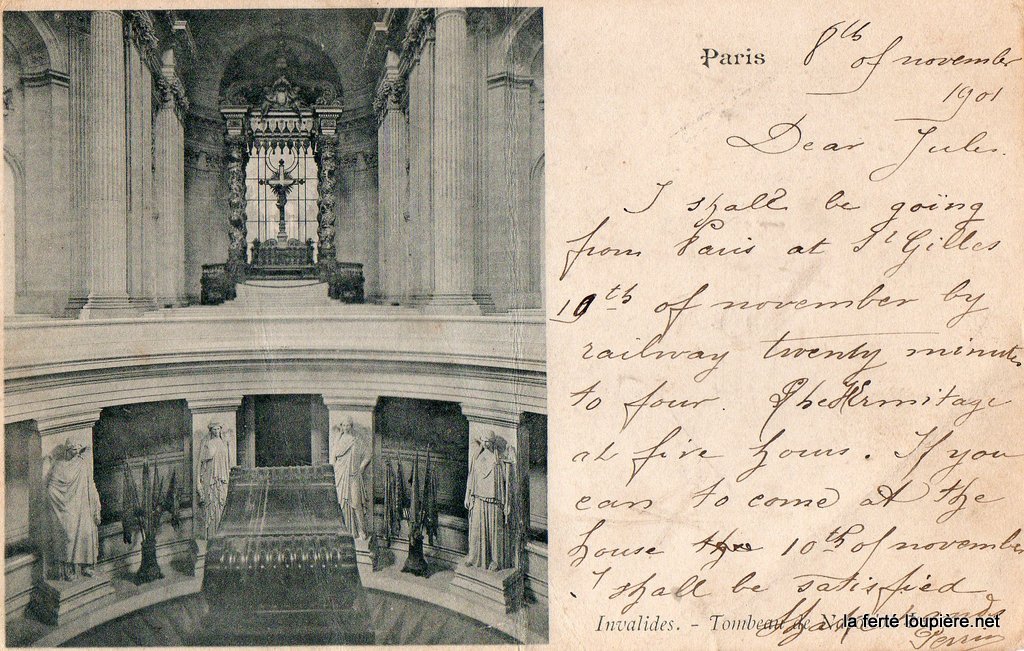 Paris
8th of november
1901
Dear Jules.
I shall be going
from Paris at St Gilles
10th of november by
railway twenty minutes
to four. The Ermitage
at five hours. If you
can to come at the
house the 10th of november
I shall be satisfied
Shake hands
Invalides. - Tombeau de
la ferté loupière.net